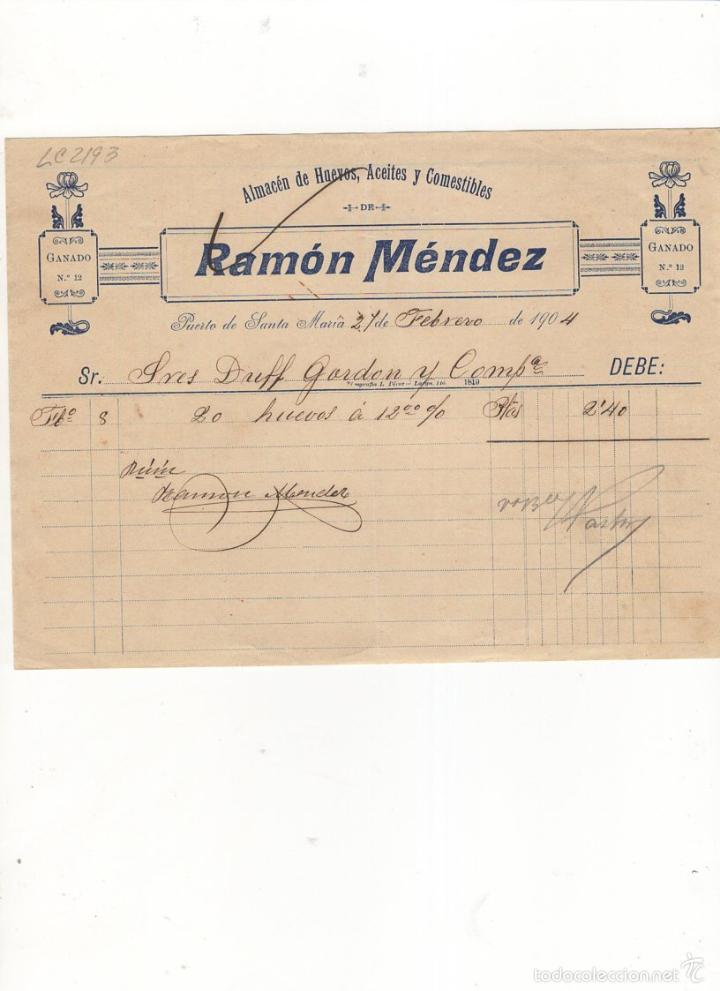 LC2193
Almacén de Huevos, Aceites y Comestibles
DE
Ramón Méndez
GANADO
N.º 12
GANADO
N.º 12
Puerto de Santa María 27 de Febrero de 1904
Sr. Sres Duff Gordon y Compª DEBE:
1819
Febº 8 20 huevos á 12'00 % Ptas 2'40
Recibí
Ramon Mendez
todocoleccion.net